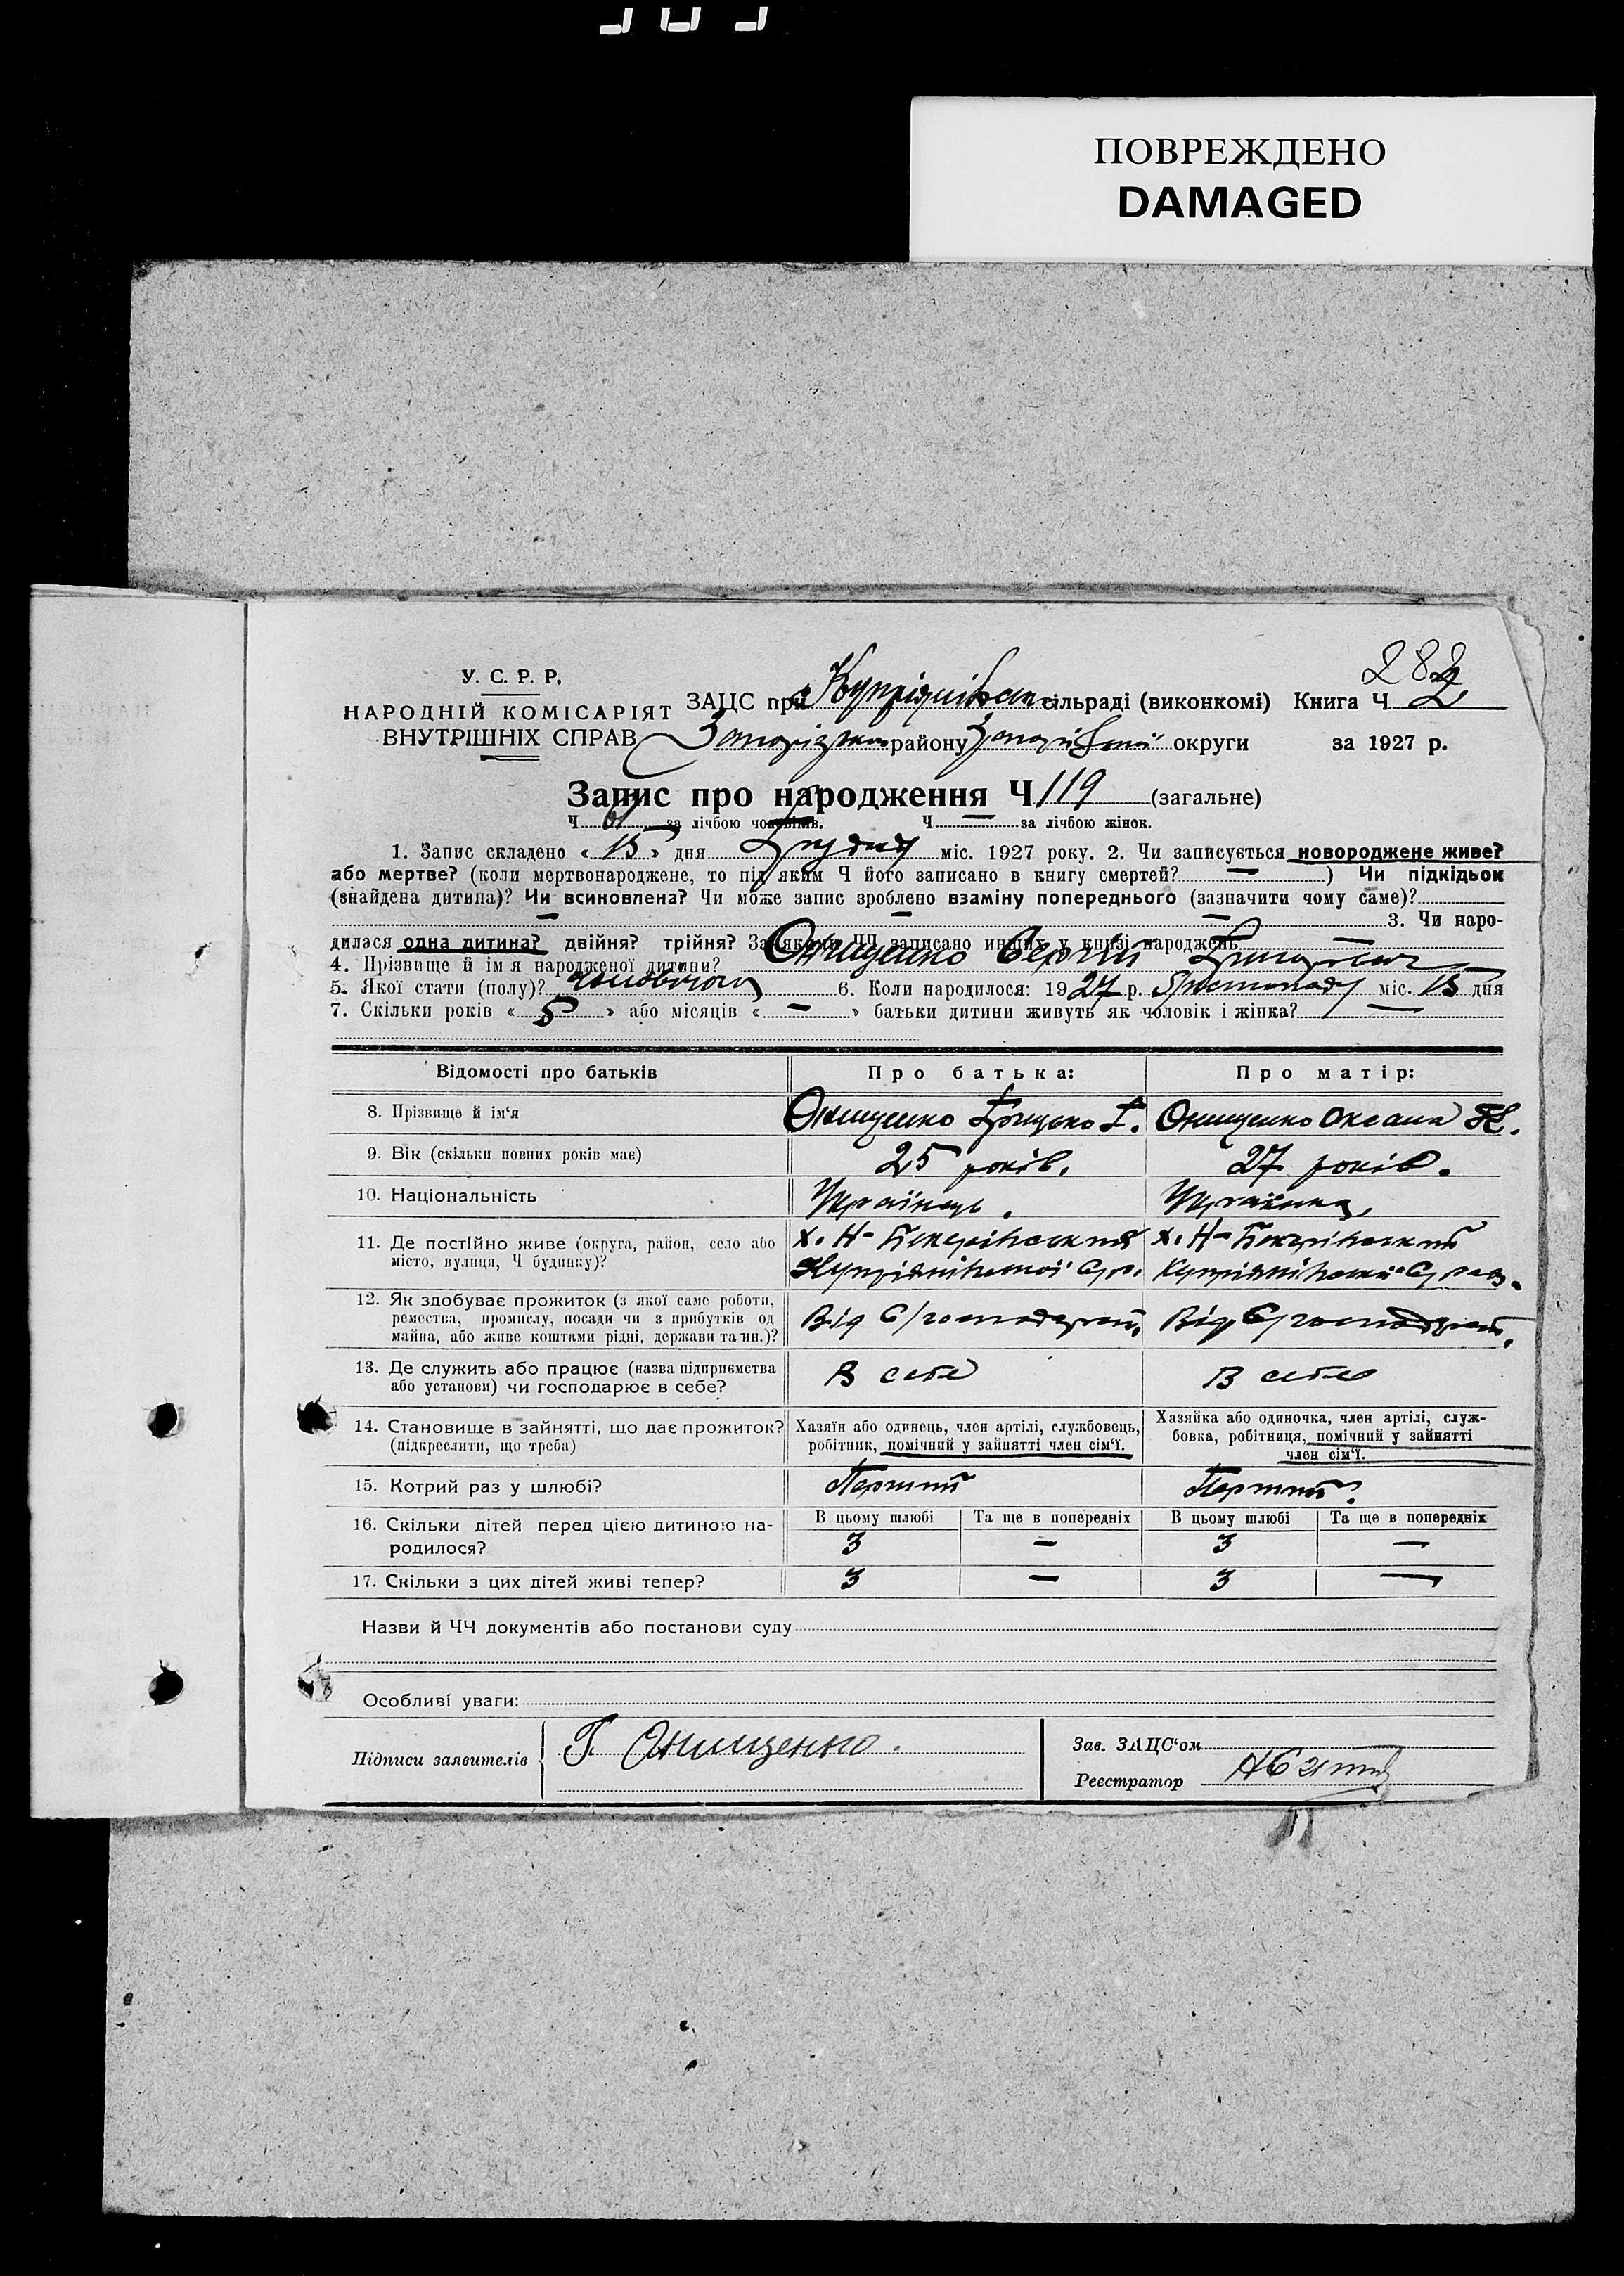 ПОВРЕЖДЕНО
DAMAGED
282
У. С. Р. Р.
НАРОДНІЙ КОМІСАРІЯТ
ВНУТРІШНІХ СПРАВ
ЗАЦС при Купріянівськ сільраді (виконкомі) Книга Ч 2
Запорізьк району Запорізької округи за 1927 р.
Запис про народження Ч 119 (загальне)
Ч 61 за лічбою чоловіків. Ч — за лічбою жінок.
1. Запис складено « 15 » дня Грудня міс. 1927 року. 2. Чи записується новороджене живе?
або мертве? (коли мертвонароджене, то під яким Ч його записано в книгу смертей? — ) Чи підкідьок
(знайдена дитина)? Чи всиновлена? Чи може запис зроблено взаміну попереднього (зазначити чому саме)?
— — — 3. Чи наро-
дилася одна дитина? двійня? трійня? За якими ЧЧ записано инших у книзі народжень —
4. Прізвище й ім'я народженої дитини? Онищенко Сергій Григорович
5. Якої стати (полу)? чоловічого 6. Коли народилося: 1927 р. Листопаду міс. 15 дня
7. Скільки років « 5 » або місяців « — » батьки дитини живуть як чоловік і жінка? —
Відомості про батьків Про батька: Про матір:
8. Прізвище й ім'я Онищенко Грицько Г. Онищенко Оксана
9. Вік (скільки повних років має) 25 років. 27 років.
10. Національність Українець. Українка,
11. Де постійно живе (округа, район, село або
місто, вулиця, Ч будинку)? х. Н- х. Н-
Купріянівської Купріянівської
12. Як здобуває прожиток (з якої саме роботи,
ремества, промислу, посади чи з прибутків од
майна, або живе коштами рідні, держави та ин.)? Від С/господар. Від С/господар.
13. Де служить або працює (назва підприємства
або установи) чи господарює в себе? В себе В себе
14. Становище в зайнятті, що дає прожиток?
(підкреслити, що треба)
Хазяїн або одинець, член артілі, службовець,
робітник, помічний у зайнятті член сім'ї.
Хазяйка або одиночка, член артілі, служ-
бовка, робітниця, помічний у зайнятті
член сім'ї.
15. Котрий раз у шлюбі? Перший Перший
16. Скільки дітей перед цією дитиною на-
родилося?
В цьому шлюбі Та ще в попередніх В цьому шлюбі Та ще в попередніх
3 — 3 —
17. Скільки з цих дітей живі тепер? 3 — 3 —
Назви й ЧЧ документів або постанови суду
Особливі уваги:
Підписи заявителів Г. Онищенко.
Зав. ЗАЦС'ом
Реєстратор